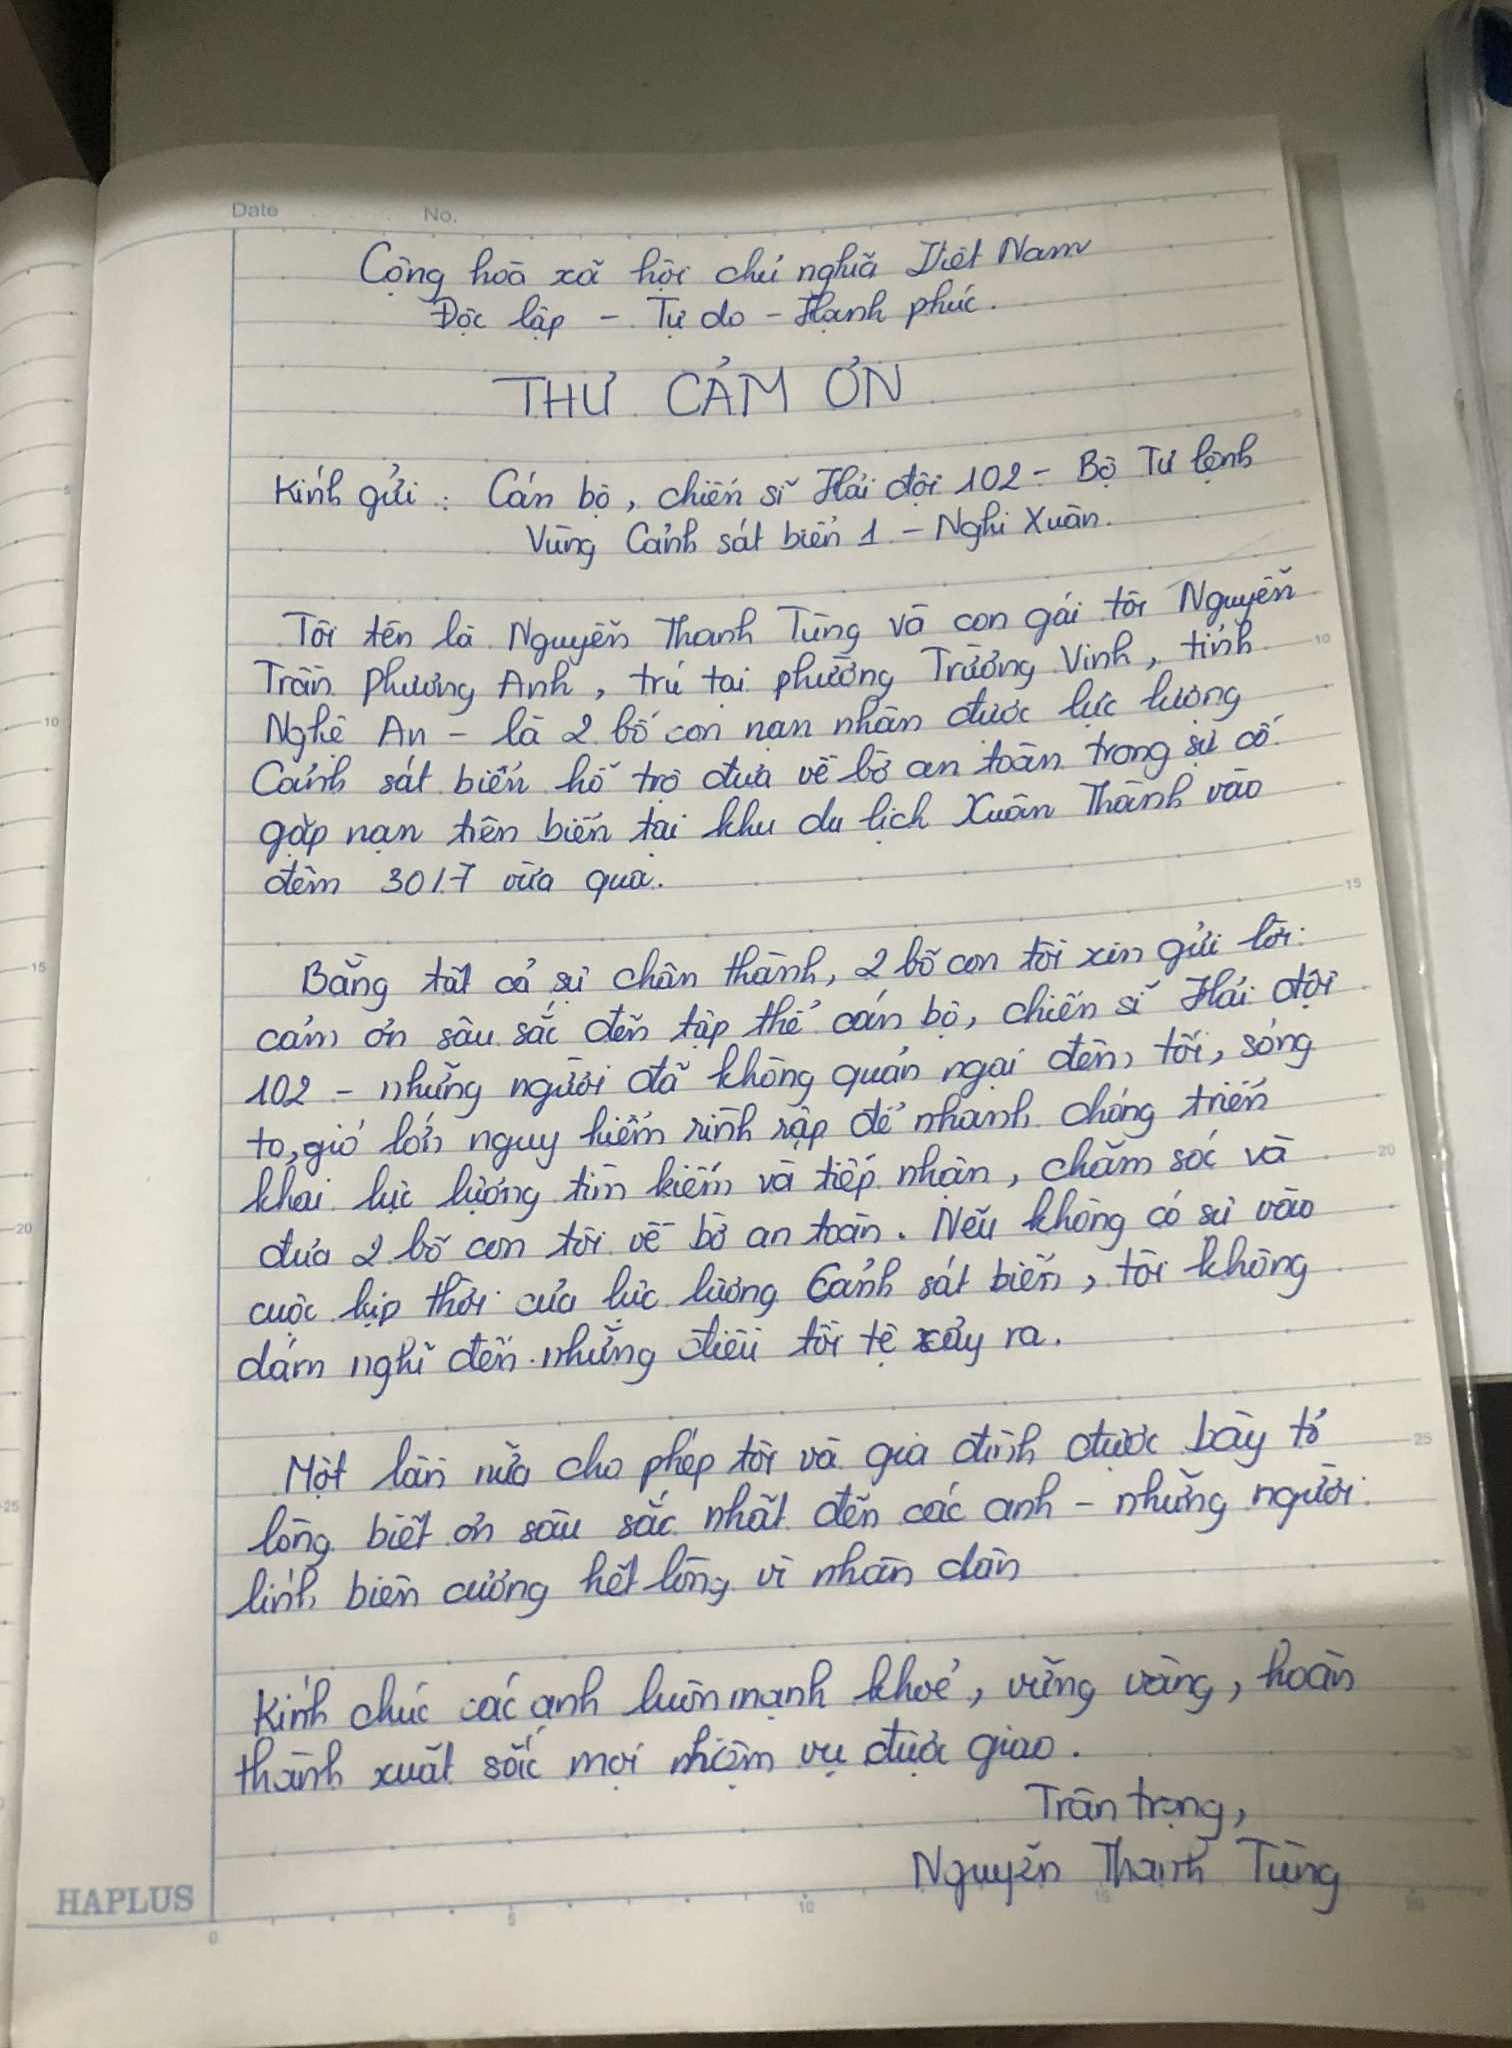 Date No.
Cộng hoà xã hội chủ nghĩa Việt Nam
Độc lập - Tự do - Hạnh phúc.
THƯ CẢM ƠN
Kính gửi : Cán bộ, chiến sĩ Hải đội 102 - Bộ Tư lệnh
Vùng Cảnh sát biển 1 - Nghi Xuân.
Tôi tên là Nguyễn Thanh Tùng và con gái tôi Nguyễn
Trần Phương Anh, trú tại phường Trường Vinh, tỉnh
Nghệ An - là 2 bố con nạn nhân được lực lượng
Cảnh sát biển hỗ trợ đưa về bờ an toàn trong sự cố
gặp nạn trên biển tại khu du lịch Xuân Thành vào
đêm 30/7 vừa qua.
Bằng tất cả sự chân thành, 2 bố con tôi xin gửi lời
cảm ơn sâu sắc đến tập thể cán bộ, chiến sĩ Hải đội
102 - những người đã không quản ngại đêm tối, sóng
to, gió lớn nguy hiểm rình rập để nhanh chóng triển
khai lực lượng tìm kiếm và tiếp nhận, chăm sóc và
đưa 2 bố con tôi về bờ an toàn. Nếu không có sự vào
cuộc kịp thời của lực lượng Cảnh sát biển, tôi không
dám nghĩ đến những điều tồi tệ xảy ra.
Một lần nữa cho phép tôi và gia đình được bày tỏ
lòng biết ơn sâu sắc nhất đến các anh - những người
lính biên cương hết lòng vì nhân dân
Kính chúc các anh luôn mạnh khoẻ, vững vàng, hoàn
thành xuất sắc mọi nhiệm vụ được giao.
Trân trọng,
Nguyễn Thanh Tùng
HAPLUS